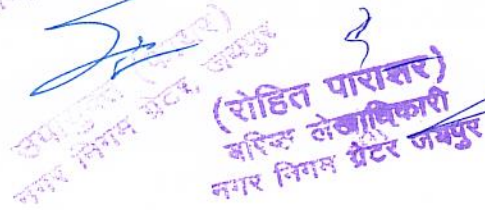 उपायुक्त
नगर निगम ग्रेटर, जयपुर
(रोहित पाराशर)
वरिष्ठ लेखाधिकारी
नगर निगम ग्रेटर जयपुर